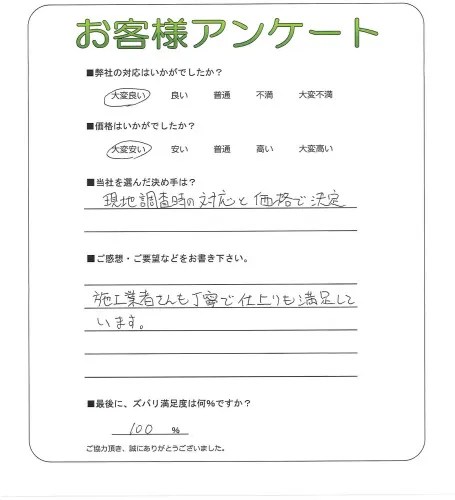 お客様アンケート
■弊社の対応はいかがでしたか？
大変良い 良い 普通 不満 大変不満
■価格はいかがでしたか？
大変安い 安い 普通 高い 大変高い
■当社を選んだ決め手は？
現地調査時の対応と価格で決定
■ご感想・ご要望などをお書き下さい。
施工業者さんも丁寧で仕上りも満足して
います。
■最後に、ズバリ満足度は何%ですか？
100 %
ご協力頂き、誠にありがとうございました。